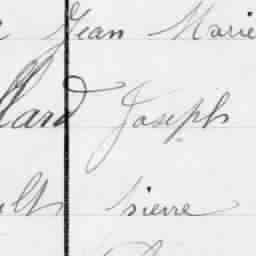 Jean Marie
llard Joseph
ult Pierre